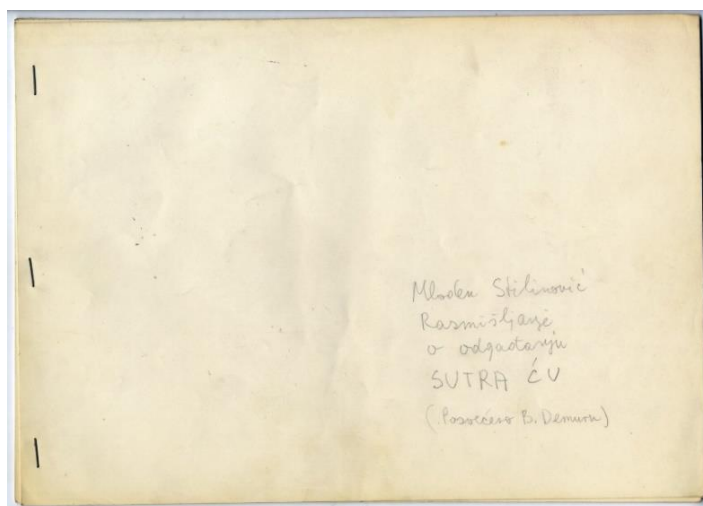 Mladen Stilinović
Razmišljanje
o odgađanju
SUTRA ĆU
(Posvećeno B. Demuru)